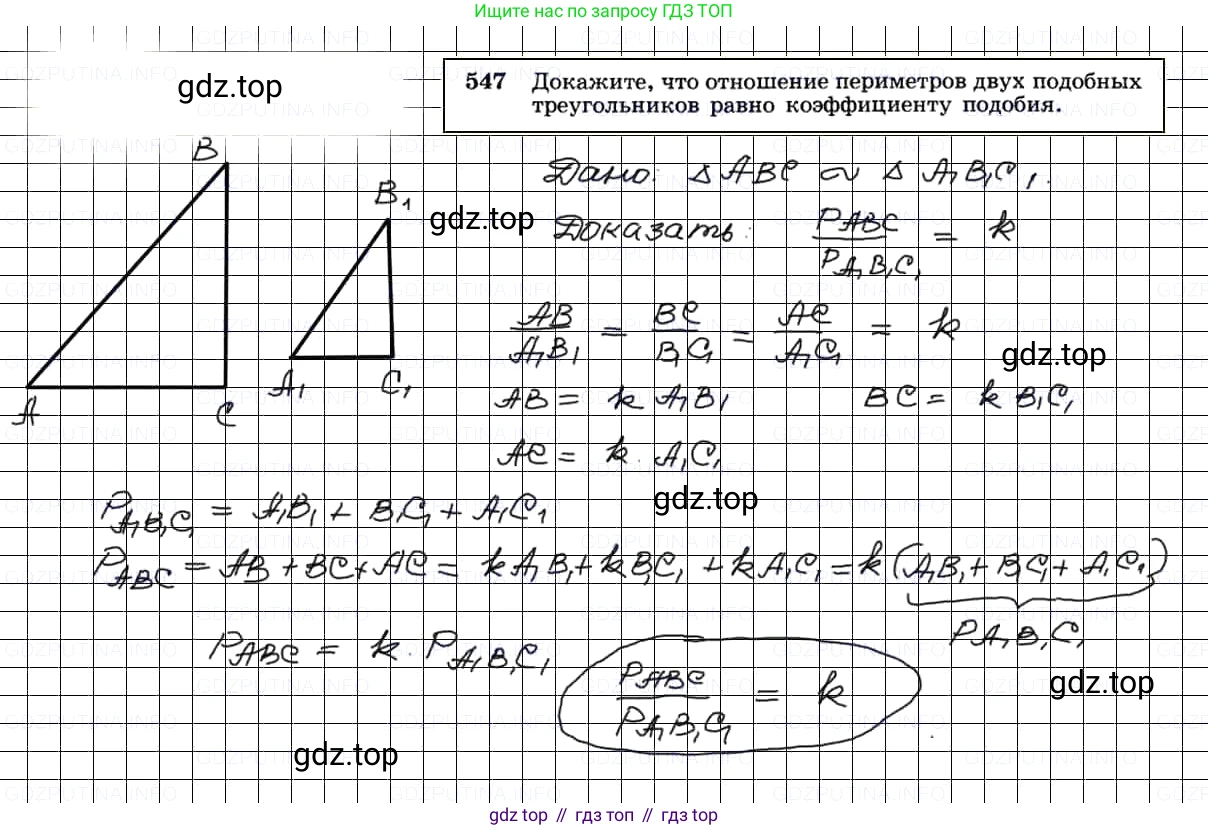 Ищите нас по запросу ГДЗ ТОП
gdz.top
547 Докажите, что отношение периметров двух подобных
треугольников равно коэффициенту подобия.
B
Дано: △ ABC ∼ △ A₁B₁C₁.
B₁
gdz.top
Доказать: P_ABC / P_A₁B₁C₁ = k
AB / A₁B₁ = BC / B₁C₁ = AC / A₁C₁ = k
gdz.top
A C A₁ C₁
AB = k A₁B₁ BC = k B₁C₁
AC = k · A₁C₁
gdz.top
P_A₁B₁C₁ = A₁B₁ + B₁C₁ + A₁C₁
P_ABC = AB + BC + AC = k A₁B₁ + k B₁C₁ + k A₁C₁ = k (A₁B₁ + B₁C₁ + A₁C₁)
P_A₁B₁C₁
P_ABC = k · P_A₁B₁C₁
P_ABC / P_A₁B₁C₁ = k
gdz.top
gdz.top
gdz top // гдз топ // gdz top
GDZPUTINA.INFO